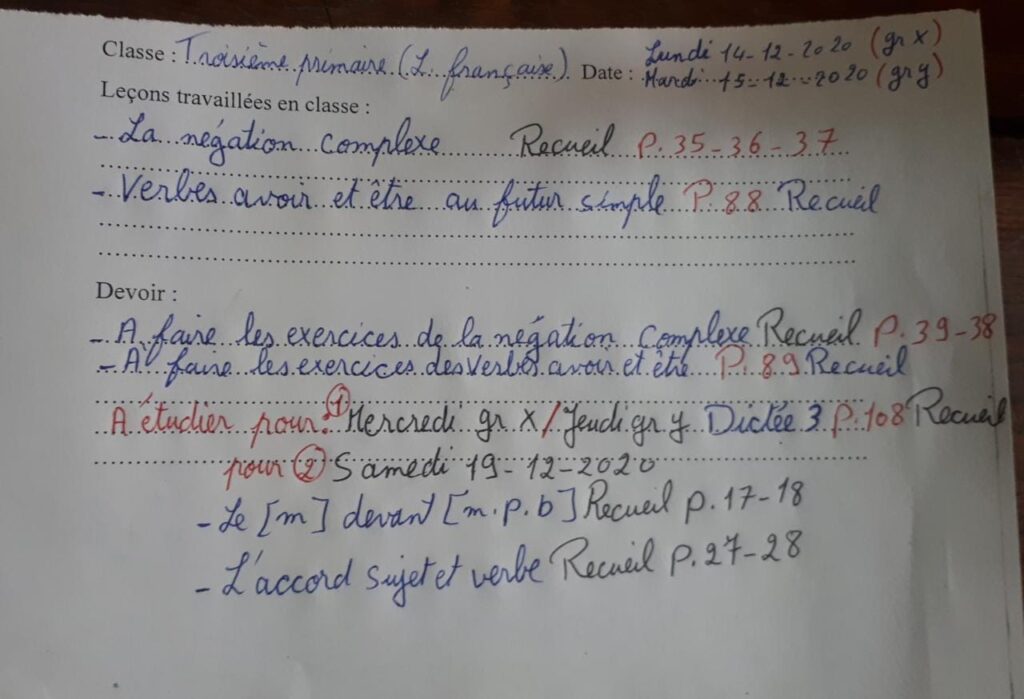 Classe : Troisième primaire (L. française). Date : Lundi 14-12-2020 (gr x)
Mardi 15-12-2020 (gr y)
Leçons travaillées en classe :
- La négation complexe Recueil P. 35-36-37
- Verbes avoir et être au futur simple P. 88 Recueil
Devoir :
- A faire les exercices de la négation complexe Recueil P. 39-38
- A faire les exercices des verbes avoir et être P. 89 Recueil
A étudier pour: ① Mercredi gr x / Jeudi gr y Dictée 3 P. 108 Recueil
pour ② Samedi 19-12-2020
- Le [m] devant [m.p.b] Recueil p. 17-18
- L'accord sujet et verbe Recueil p. 27-28